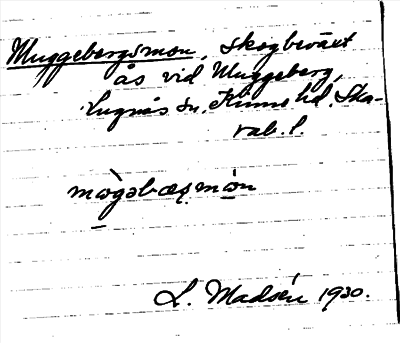 Muggebergsmon, skogbeväxt
ås vid Muggeberg,
Lugnås sn. Kinne hd. Ska-
rab. l.
L. Madsén 1930.